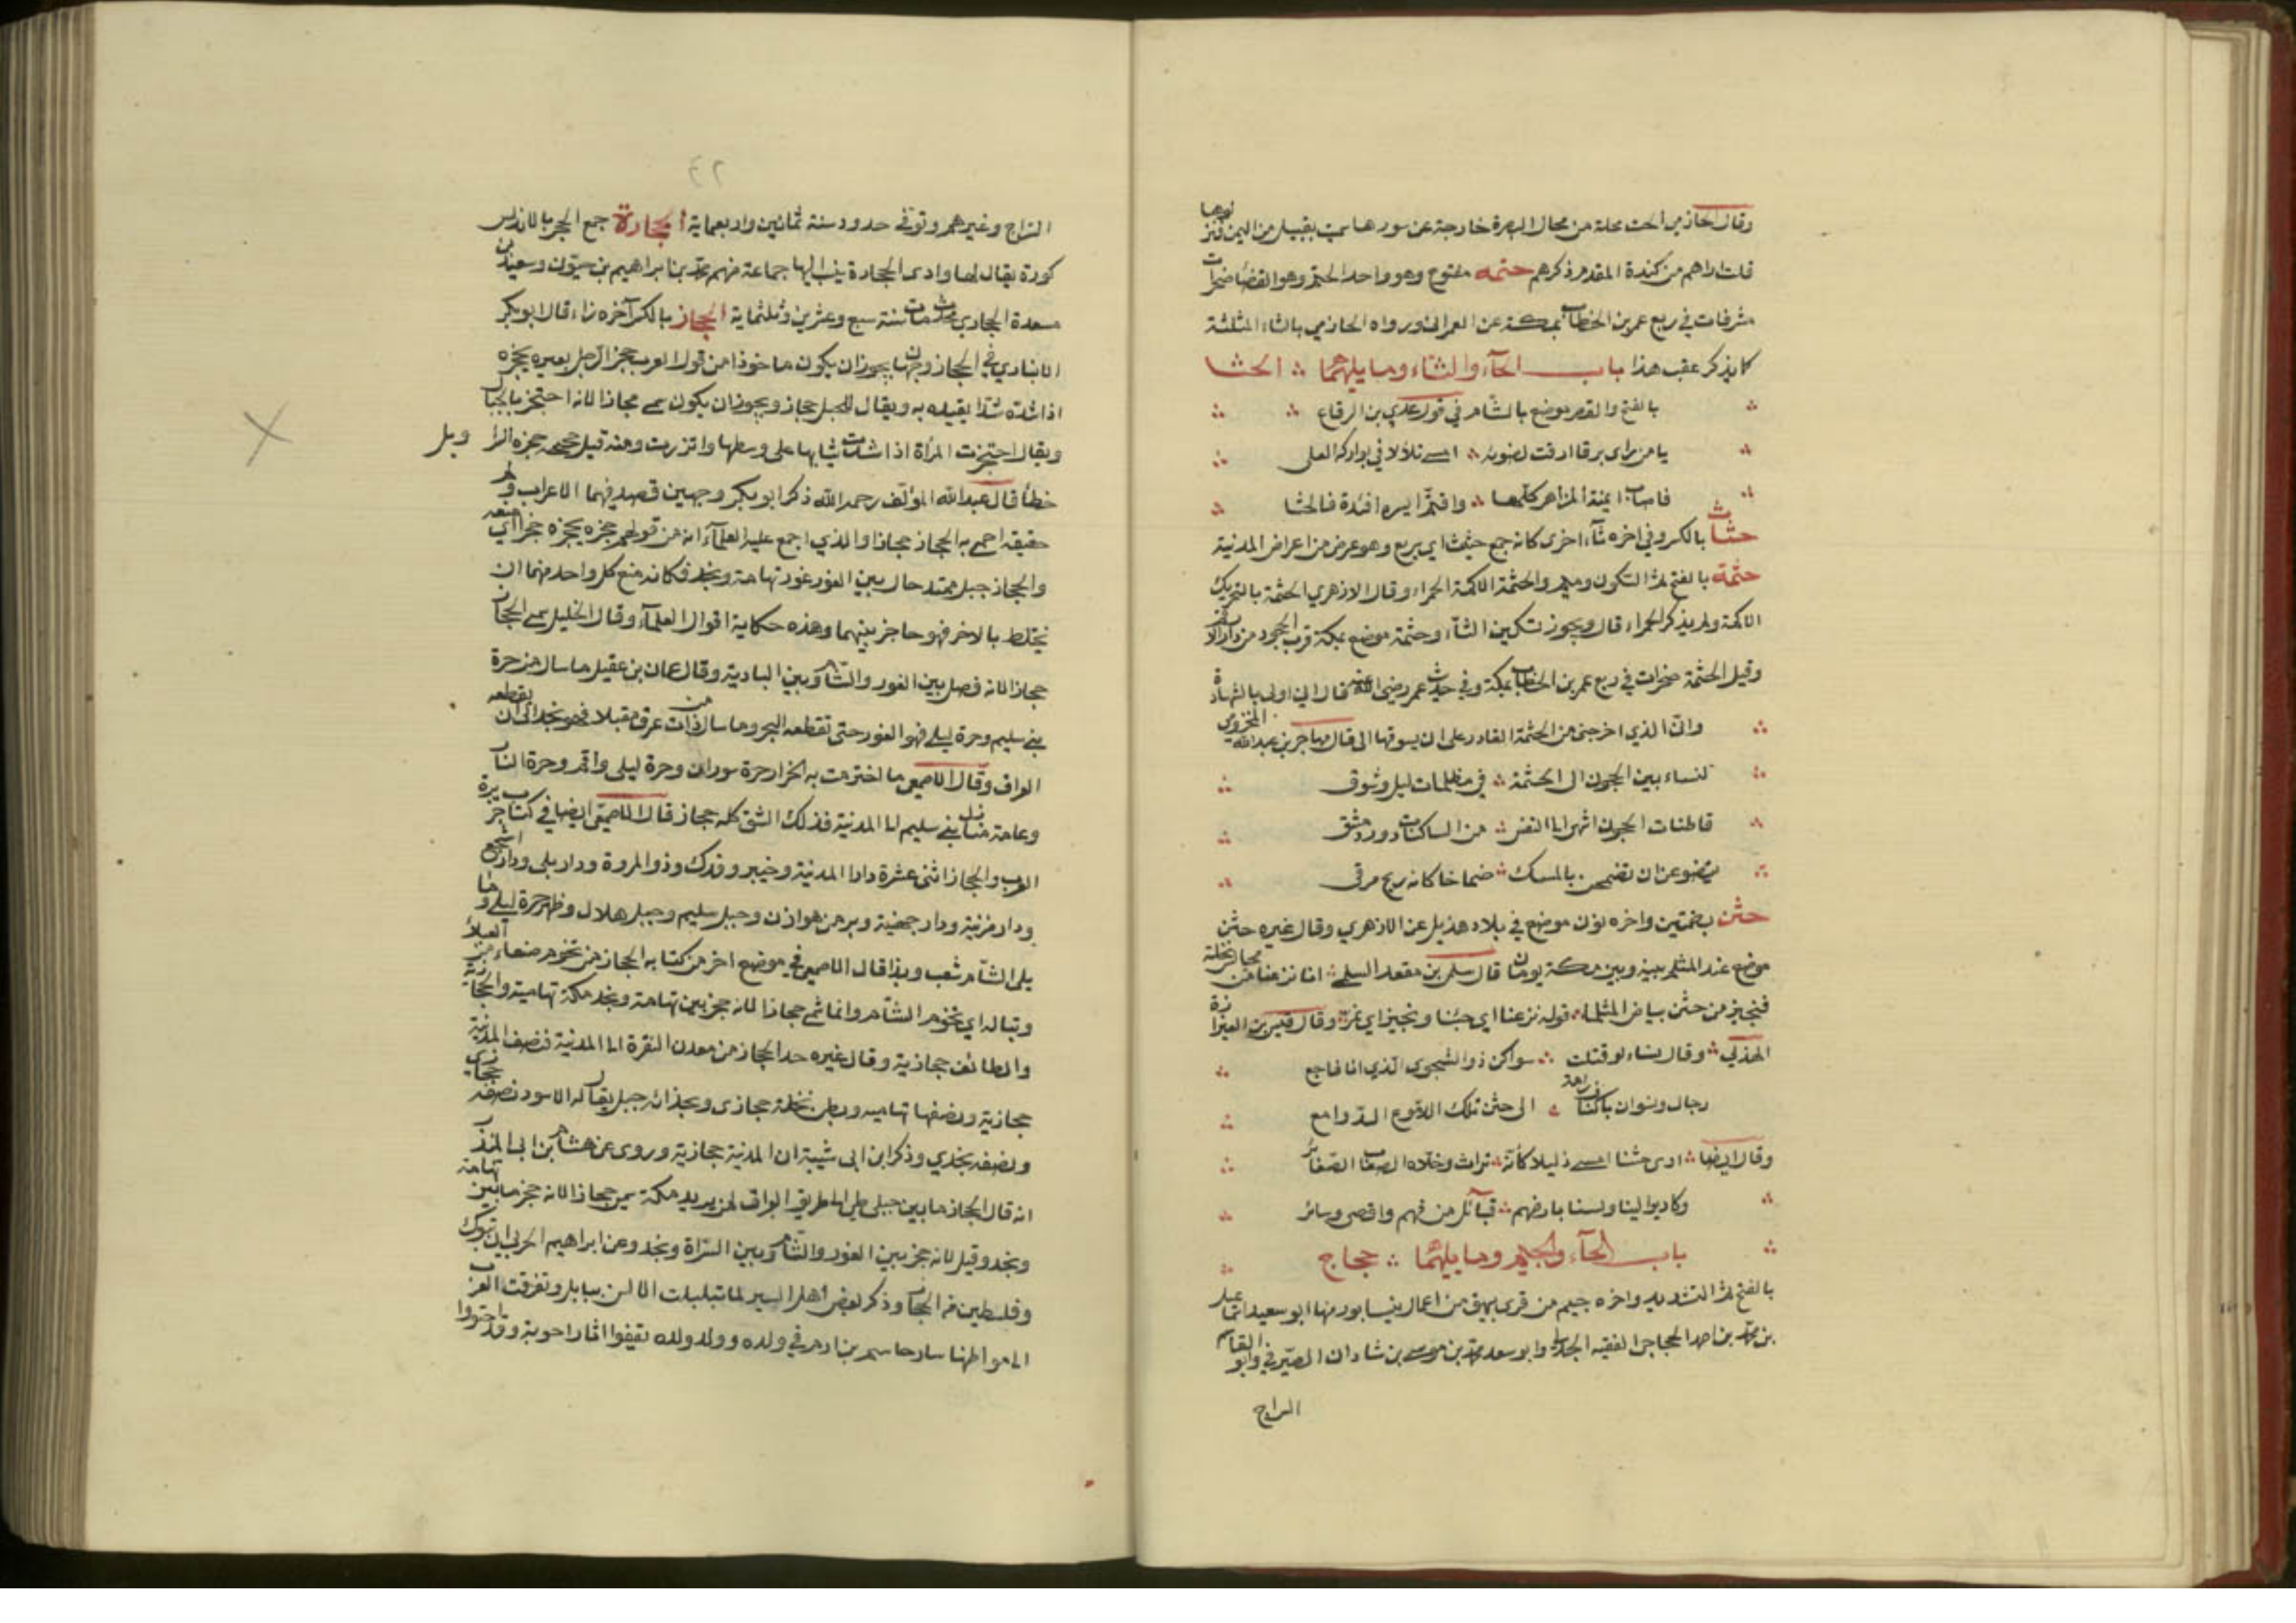 وقال الحازمي الحت محلة من محال البصرة خارجة عن سورها سميت بقبيل من اليمن نزلوها
قلت اراهم من كندة المقدم ذكرهم حتمه مفتوح وهو واحد الحتم وهو القضا صخرات
مشرفات في ربع عمر بن الخطاب بمكة عن العمراني ورواه الحازمي بالثاء المثلثة
كما يذكر عقب هذا باب الحاء والثاء وما يليهما الحثا
بالفتح والقصر موضع بالشام في قول عدي بن الرقاع
يا من راى برقا ارقت لضوئه امسى تلألا في بواركه العلى
فاصاب ايمنه المزاهر كلها واقتم ايسره افئدة فالحثا
حثاث بالكسر وفي اخره ثاء اخرى كانه جمع حثيث اي سريع وهو عرض من اعراض المدنية
حثمة بالفتح ثم السكون وميم والحثمة الاكمة الحمراء وقال الازهري الحثمة بالتحريك
الاكمة ولم يذكر الحمراء قال ويجوز تسكين الثاء وحثمة موضع بمكة قرب الحجون من دار
وقيل الحثمة صخرات في ربع عمر بن الخطاب بمكة وفي حديث عمر رضى الله عنه قال اني اولى بالشهادة
وان الذي اخرجنى من الحثمة القادر على ان يسوقها الى قال مهاجر بن عبدالله المخزومي
لنساء بين الحجون الى الحثمة في مظلمات ليل وشوق
قاطنات الحجون اشهى الى النفس من الساكنات دور دمشق
يتضوعن ان تضمخن بالمسك ضماخا كانه ريح مرقى
حثن بضمتين واخره نون موضع في بلاد هذيل عن الازهري وقال غيره حثن
موضع عند المثلم بينه وبين مكة يومان قال سلمى بن مقعد السلمى انا نزعنا من مجالس نخلة
فنجيز من حثن بياض المثلما قوله نزعنا اي جئنا ونجيز اي نمر وقال قيس بن العيزارة
الهذلي وقال نساء لو قتلت سواكن ذو الشجوى الذي انا فاجع
رجال ونسوان باكناف راية الى حثن تلك الدموع الدوامع
وقال ايضا ارى حثنا امسى ذليلا كأنه تراث وخلاه الصعاب الصعائر
وكاد يوالينا ولسنا بارضهم قبائل من فهم واقصى وسائر
باب الحاء والجيم وما يليهما حجاج
بالفتح ثم التشديد واخره جيم من قرى بيهق من اعمال نيسابور منها ابو سعيد اسماعيل
بن محمد بن احمد الحجاجي الفقيه الحنفي وابو سعد محمد بن موسى بن شاذان الصيرفي وابو القاسم
السراج
٢٤
السراج وغيرهم وتوفي حدود سنة ثمانين واربعماية الحجارة جمع الحجر بالاندلس
كورة يقال لها وادى الحجارة ينسب اليها جماعة منهم محمد بن ابراهيم بن حيون وسعيد بن
مسعدة الحجاري محدث مات سنة سبع وعشرين وثلثماية الحجاز بالكسر آخره زاء قال ابوبكر
الانباري في الحجاز وجهان يجوز ان يكون ماخوذا من قول العرب حجز الرجل بعيره يحجزه
اذا شده شدا يقيده به ويقال للحبل حجاز ويجوز ان يكون سمى حجازا لانه احتجز بالجبال
ويقال احتجزت المرأة اذا شدت ثيابها على وسطها واتزرت ومنه قيل حجزه السراويل
خطأ قال عبدالله المؤلف رحمه الله ذكر ابو بكر وجهين قصد فيهما الاعراب ولم
حقيقه احمى به الحجاز حجازا والذي اجمع عليه العلماء انه من قولهم حجزه يحجزه حجزا اي منعه
والحجاز جبل ممتد حال بين الغور غور تهامة ونجد فكانه منع كل واحد منهما ان
يختلط بالاخر فهو حاجز بينهما وهذه حكاية اقوال العلماء وقال الخليل سمى الحجاز
حجازا لانه فصل بين الغور والشام وبين البادية وقال عمارة بن عقيل ما سال من حرة
بني سليم وحرة ليلى فهو الغور حتى تقطعه البحر وما سال من ذات عرق مقبلا فهو نجد الى ان يقطعه
العراق وقال الاصمعي ما احتزمت به الحرار حرة شوران وحرة ليلى واقم وحرة النار
وعامة منازل بني سليم الى المدنية فذلك الشق كله حجاز قال الاصمعي ايضا في كتاب جزيرة
العرب والحجاز اثنى عشرة دارا المدنية وخيبر وفدك وذو المروة ودار بلى ودار اشجع
ودار مزنية ودار جهنية ونفر من هوازن وجبل سليم وجبل هلال وظهر حرة ليلى ومما
يلى الشام شغب وبدا قال الاصمعي في موضع اخر من كتابه الحجاز من تخوم صنعاء من العبلاء
وتباله الى تخوم الشام وانما سمى حجازا لانه حجز بين تهامة ونجد فمكة تهامية والمدنية حجازية
والطائف حجازية وقال غيره حد الحجاز من معدن النقرة الى المدنية فنصف المدنية
حجازية ونصفها تهاميه وبطن نخلة حجازى وبحذائه جبل يقال له الاسود نصفه حجازي
ونصفه نجدي وذكر ابن ابى شيبة ان المدنية حجازية وروى عن هشام بن ابى المنذر
انه قال الحجاز ما بين جبلى طي الى طريق العراق لمن يريد مكة سمى حجازا لانه حجز ما بين تهامة
ونجد وقيل لانه حجز بين الغور والشام وبين السراة ونجد وعن ابراهيم الحربى ان تبوك
وفلسطين من الحجاز وذكر بعض اهل السير لما تبلبلت الالسن ببابل وتفرقت العرب
الى مواطنها سار طسم بن ارم في ولده وولد ولده تقيفوا اثار اخوته وقد احتووا